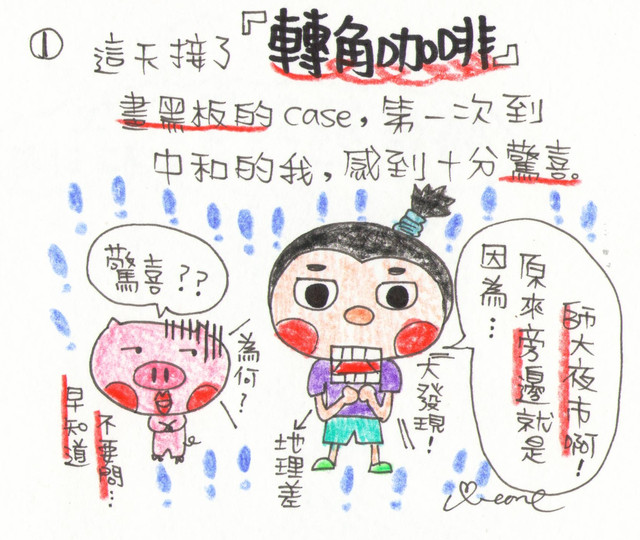 ① 這天接了『轉角咖啡』
畫黑板的case，第一次到
中和的我，感到十分驚喜。
驚喜？？
為何？
早知道
不要問…
大發現！
地理差
因為…
原來旁邊就是
師大夜市啊！